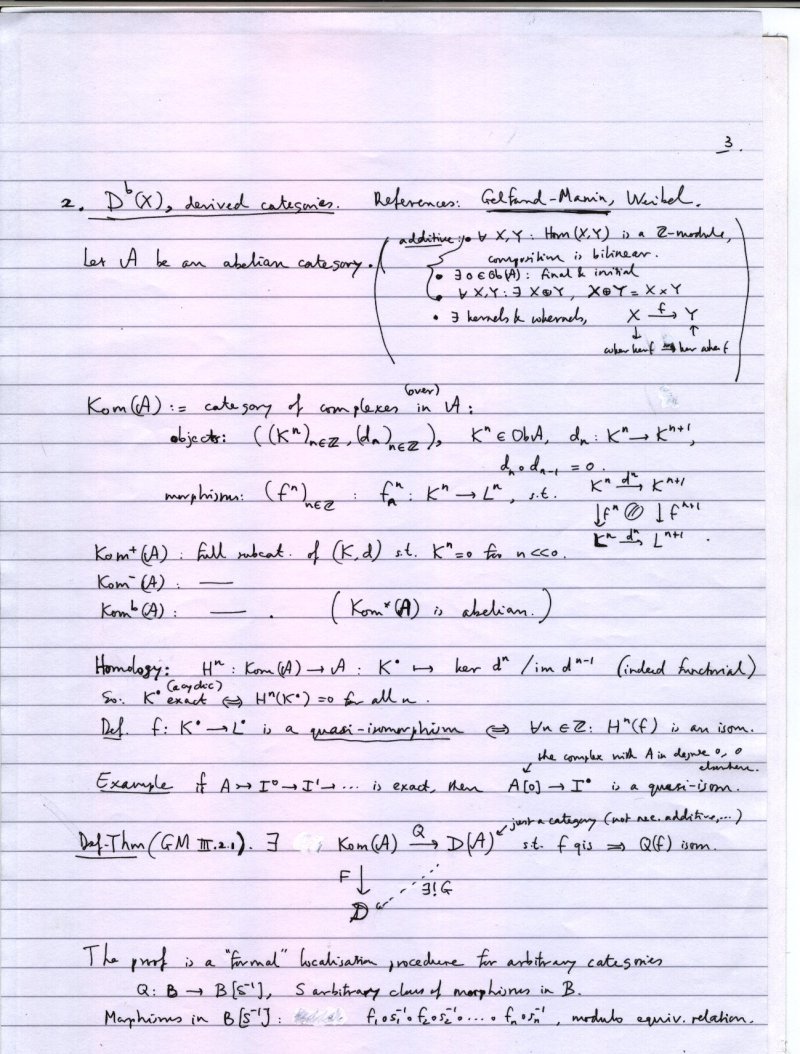 3.
2. D^b(X), derived categories. References: Gelfand-Manin, Weibel.
Let A be an abelian category. (additive: • ∀ X,Y: Hom(X,Y) is a Z-module,
composition is bilinear.
• ∃ 0 ∈ Ob(A): final & initial
• ∀ X,Y: ∃ X⊕Y, X⊕Y = X×Y
• ∃ kernels & cokernels, X →^f Y
↓ ↑
coker ker f → ker coker f)
Kom(A) := category of complexes in (over) A:
objects: ((K^n)_{n∈Z}, (d_n)_{n∈Z}), K^n ∈ Ob A, d_n : K^n → K^{n+1},
d_n ∘ d_{n-1} = 0.
morphisms: (f^n)_{n∈Z} : f^n : K^n → L^n, s.t. K^n →^{d^n} K^{n+1}
↓f^n ↓f^{n+1}
L^n →^{d^n} L^{n+1}.
Kom^+(A) : full subcat. of (K,d) s.t. K^n = 0 for n<<0.
Kom^-(A) : —
Kom^b(A) : — . (Kom^*(A) is abelian.)
Homology: H^n : Kom(A) → A : K^• ↦ ker d^n / im d^{n-1} (indeed functorial)
So: K^• exact (acyclic) ⇔ H^n(K^•) = 0 for all n.
Def. f: K^• → L^• is a quasi-isomorphism ⇔ ∀n∈Z: H^n(f) is an isom.
the complex with A in degree 0, 0 elsewhere.
Example if A ↣ I^0 → I^1 → ... is exact, then A[0] → I^• is a quasi-isom.
just a category (not nec. additive,...)
Def-Thm (GM III.2.1). ∃ Kom(A) →^Q D(A) s.t. f qis ⇒ Q(f) isom.
F ↓ ∃!G
D
The proof is a "formal" localisation procedure for arbitrary categories
Q: B → B[S^{-1}], S arbitrary class of morphisms in B.
Morphisms in B[S^{-1}]: f_1∘s_1^{-1}∘f_2∘s_2^{-1}∘...∘f_n∘s_n^{-1}, modulo equiv. relation.